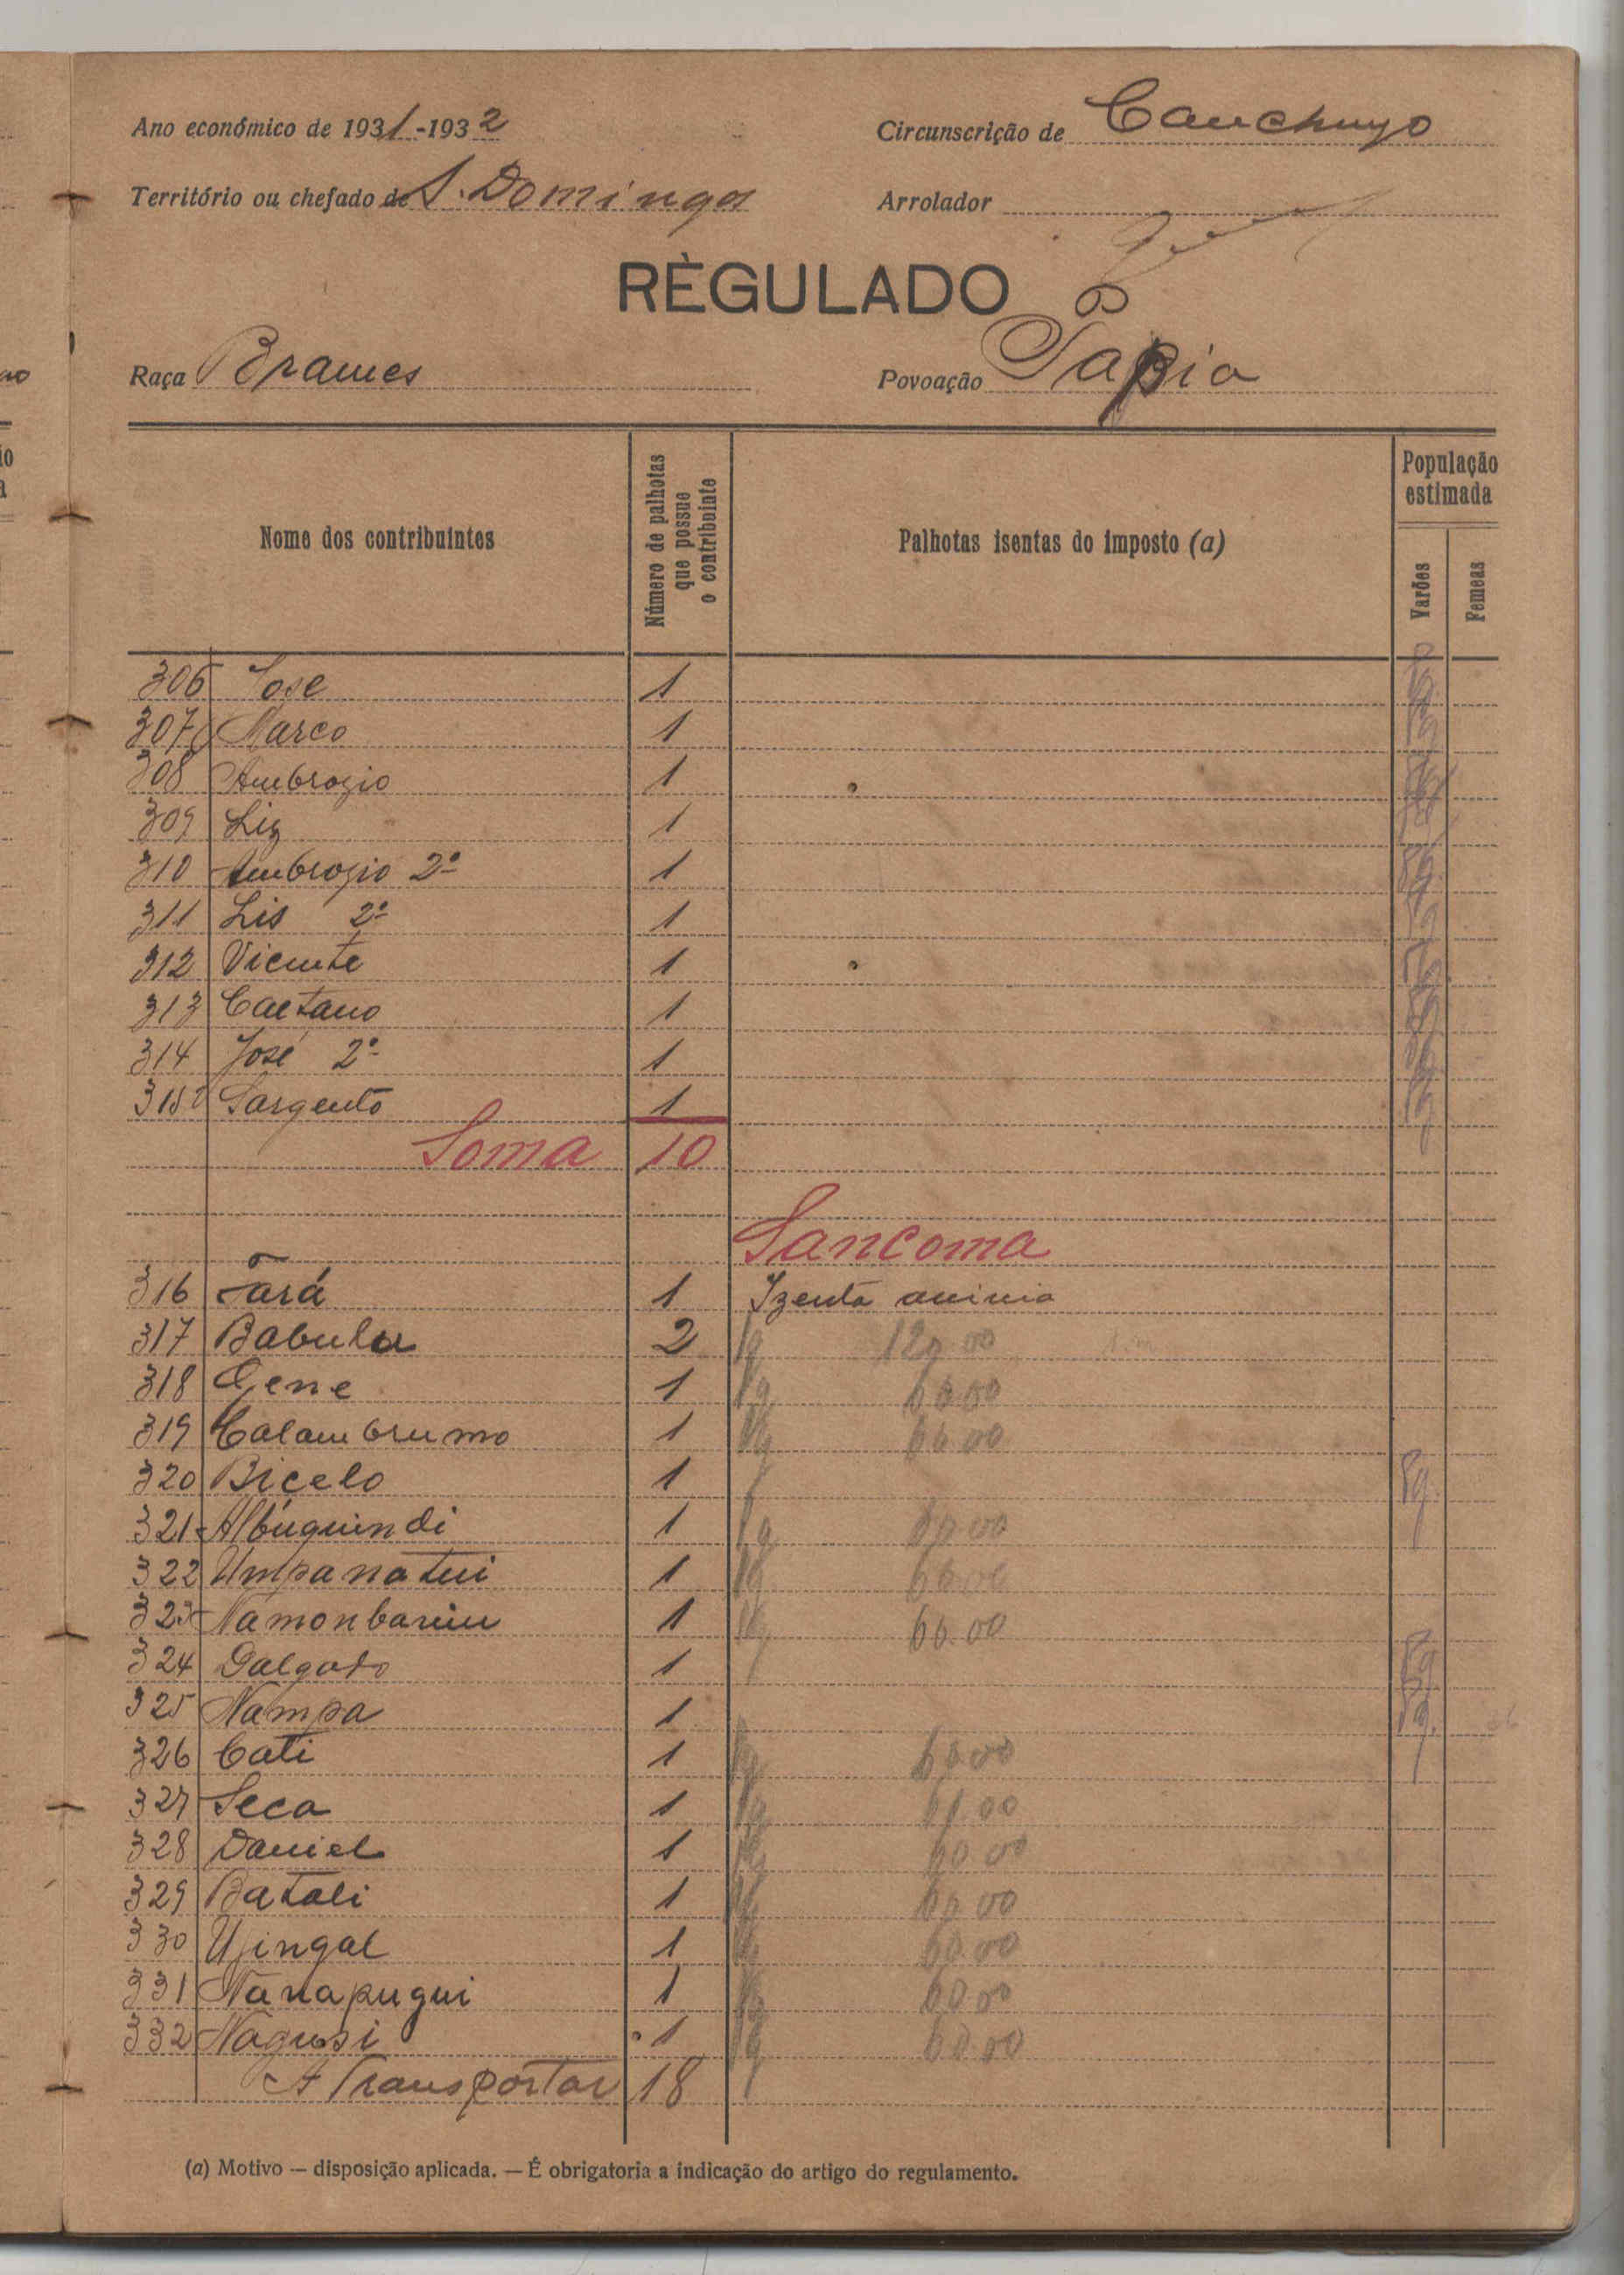 Ano económico de 1931-1932
Circunscrição de Canchungo
Território ou chefado de S. Domingos
Arrolador
RÈGULADO
Raça Brames
Povoação Pápia
Nome dos contribuintes
Número de palhotas que possue o contribuinte
Palhotas isentas do imposto (a)
População estimada
Varões
Femeas
306 Jose 1
307 Marco 1
308 Ambrozio 1
309 Liz 1
310 Ambrozio 2º 1
311 Lis 2º 1
312 Vicente 1
313 Caetano 1
314 José 2º 1
315 Sargento 1
Soma 10
Sancoma
316 Tará 1 Izenta
317 Babula 2 Pg 120.00
318 Gene 1 Pg 60.00
319 Calambrumo 1 Pg 60.00
320 Bicelo 1 Pg.
321 Albuquindi 1 Pg 60.00
322 Umpanatui 1 Pg 60.00
323 Namonbariu 1 Pg 60.00
324 Dalgado 1 Pg
325 Nampa 1 Pg.
326 Cati 1 Pg 60.00
327 Seca 1 Pg 60.00
328 Daniel 1 Pg 60.00
329 Batali 1 Pg 60.00
330 Ujingal 1 Pg 60.00
331 Nanapugui 1 Pg 60.00
332 Nagusi 1 Pg 60.00
A Transportar 18
(a) Motivo — disposição aplicada. — É obrigatoria a indicação do artigo do regulamento.